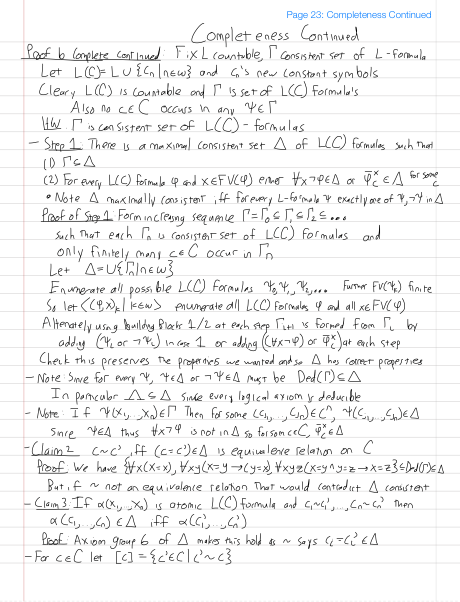 Page 23: Completeness Continued
Completeness Continued
Proof ⊢ Complete Continued: Fix L countable, Γ consistent set of L-formula
Let L(C) = L ∪ {Cn | n∈ω} and Cn's new constant symbols
Cleary L(C) is countable and Γ is set of L(C) formula's
Also no c∈C occurs in any Ψ∈Γ
HW: Γ is consistent set of L(C)-formulas
- Step 1: There is a maximal consistent set Δ of L(C) formulas such that
(1) Γ⊆Δ
(2) For every L(C) formula φ and x∈FV(φ) either ∀x¬φ∈Δ or φ̄ˣc∈Δ for some c
• Note Δ maximally consistent iff for every L-formula Ψ exactly one of Ψ,¬Ψ in Δ
Proof of Step 1: Form increasing sequence Γ=Γ0⊆Γ1⊆Γ2⊆...
such that each Γn is consistent set of L(C) formulas and
only finitely many c∈C occur in Γn
Let Δ=∪{Γn|n∈ω}
Enumerate all possible L(C) formulas Ψ0,Ψ1,Ψ2,... Further FV(Ψk) finite
So let <(φ,x)k | k∈ω> enumerate all L(C) formulas φ and all x∈FV(φ)
Alternately using building blocks 1/2 at each step Γi+1 is formed from Γi by
adding (Ψk or ¬Ψk) in case 1 or adding ((∀x¬φ) or φ̄ˣc) at each step
Check this preserves the properties we wanted and so Δ has correct properties
- Note: Since for every Ψ, Ψ∈Δ or ¬Ψ∈Δ must be Ded(Γ)⊆Δ
In particular Λ⊆Δ since every logical axiom is deducible
- Note: If Ψ(x1,...xn)∈Γ Then for some (cj1,...,cjn)∈Cⁿ, Ψ(cj1,...,cjn)∈Δ
Since Ψ∈Δ thus ∀x¬φ is not in Δ so for some c∈C, φ̄ˣc∈Δ
- Claim 2 c~c' iff (c=c')∈Δ is equivalence relation on C
Proof: We have {∀x(x=x), ∀xy(x=y→(y=x), ∀xyz(x=y∧y=z→x=z)}⊆Ded(Γ)⊆Δ
But if ~ not an equivalence relation that would contradict Δ consistent
- Claim 3: If α(x1,...,xn) is atomic L(C) formula and c1~c1',...,cn~cn' then
α(c1,...,cn)∈Δ iff α(c1',...,cn')
Proof: Axiom group 6 of Δ makes this hold as ~ says ci=ci'∈Δ
- For c∈C let [c]={c'∈C|c'~c}